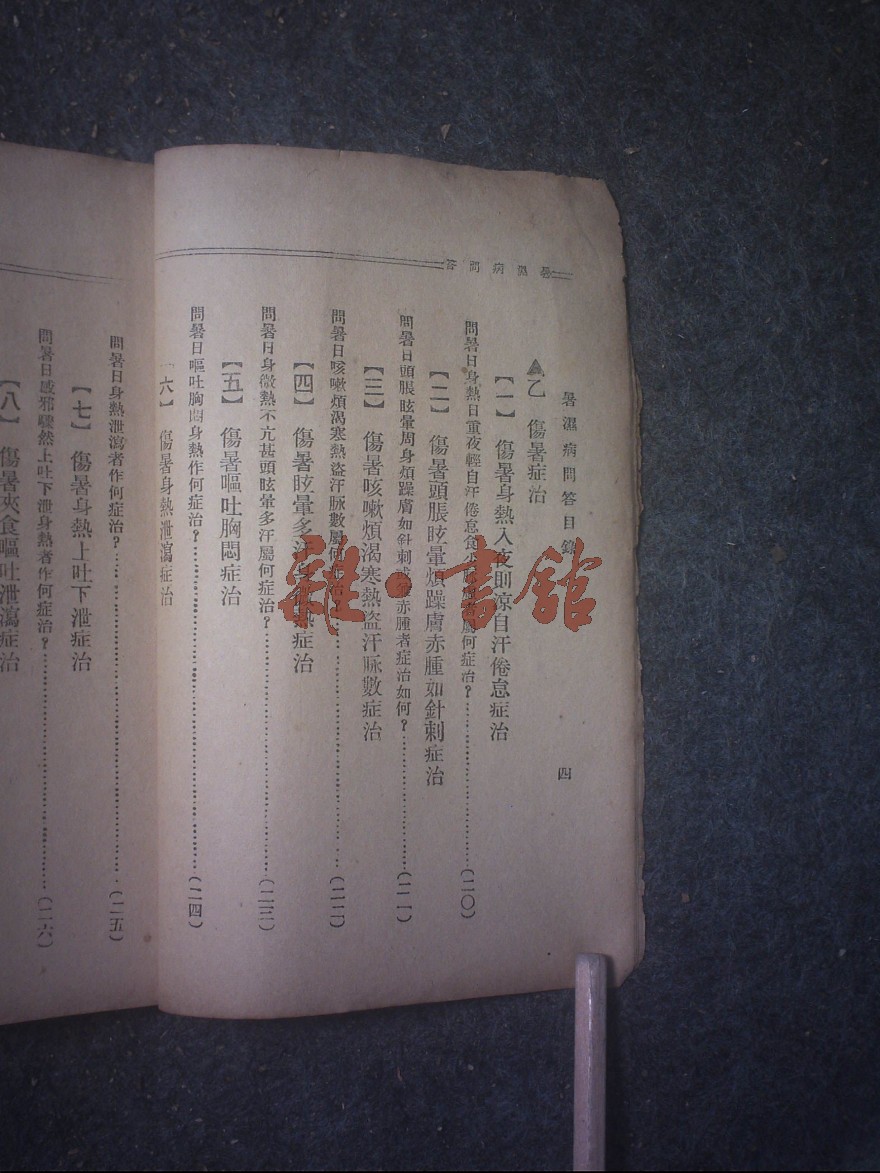 暑濕病問答
暑濕病問答目錄
四
▲乙 傷暑症治
【一】 傷暑身熱入夜則涼自汗倦怠症治
問暑日身熱日重夜輕自汗倦怠食 何症治？……（二〇）
【二】 傷暑頭脹眩暈煩躁膚赤腫如針刺症治
問暑日頭脹眩暈周身煩躁膚如針刺或 赤腫者症治如何？……（二一）
【三】 傷暑咳嗽煩渴寒熱盜汗脉數症治
問暑日咳嗽煩渴寒熱盜汗脉數屬何症治？……（二二）
【四】 傷暑眩暈多汗身微熱症治
問暑日身微熱不亢甚頭眩暈多汗屬何症治？……（二三）
【五】 傷暑嘔吐胸悶症治
問暑日嘔吐胸悶身熱作何症治？……（二四）
【六】 傷暑身熱泄瀉症治
問暑日身熱泄瀉者作何症治？……（二五）
【七】 傷暑身熱上吐下泄症治
問暑日感邪驟然上吐下泄身熱者作何症治？……（二六）
【八】 傷暑夾食嘔吐泄瀉症治
雜·書館